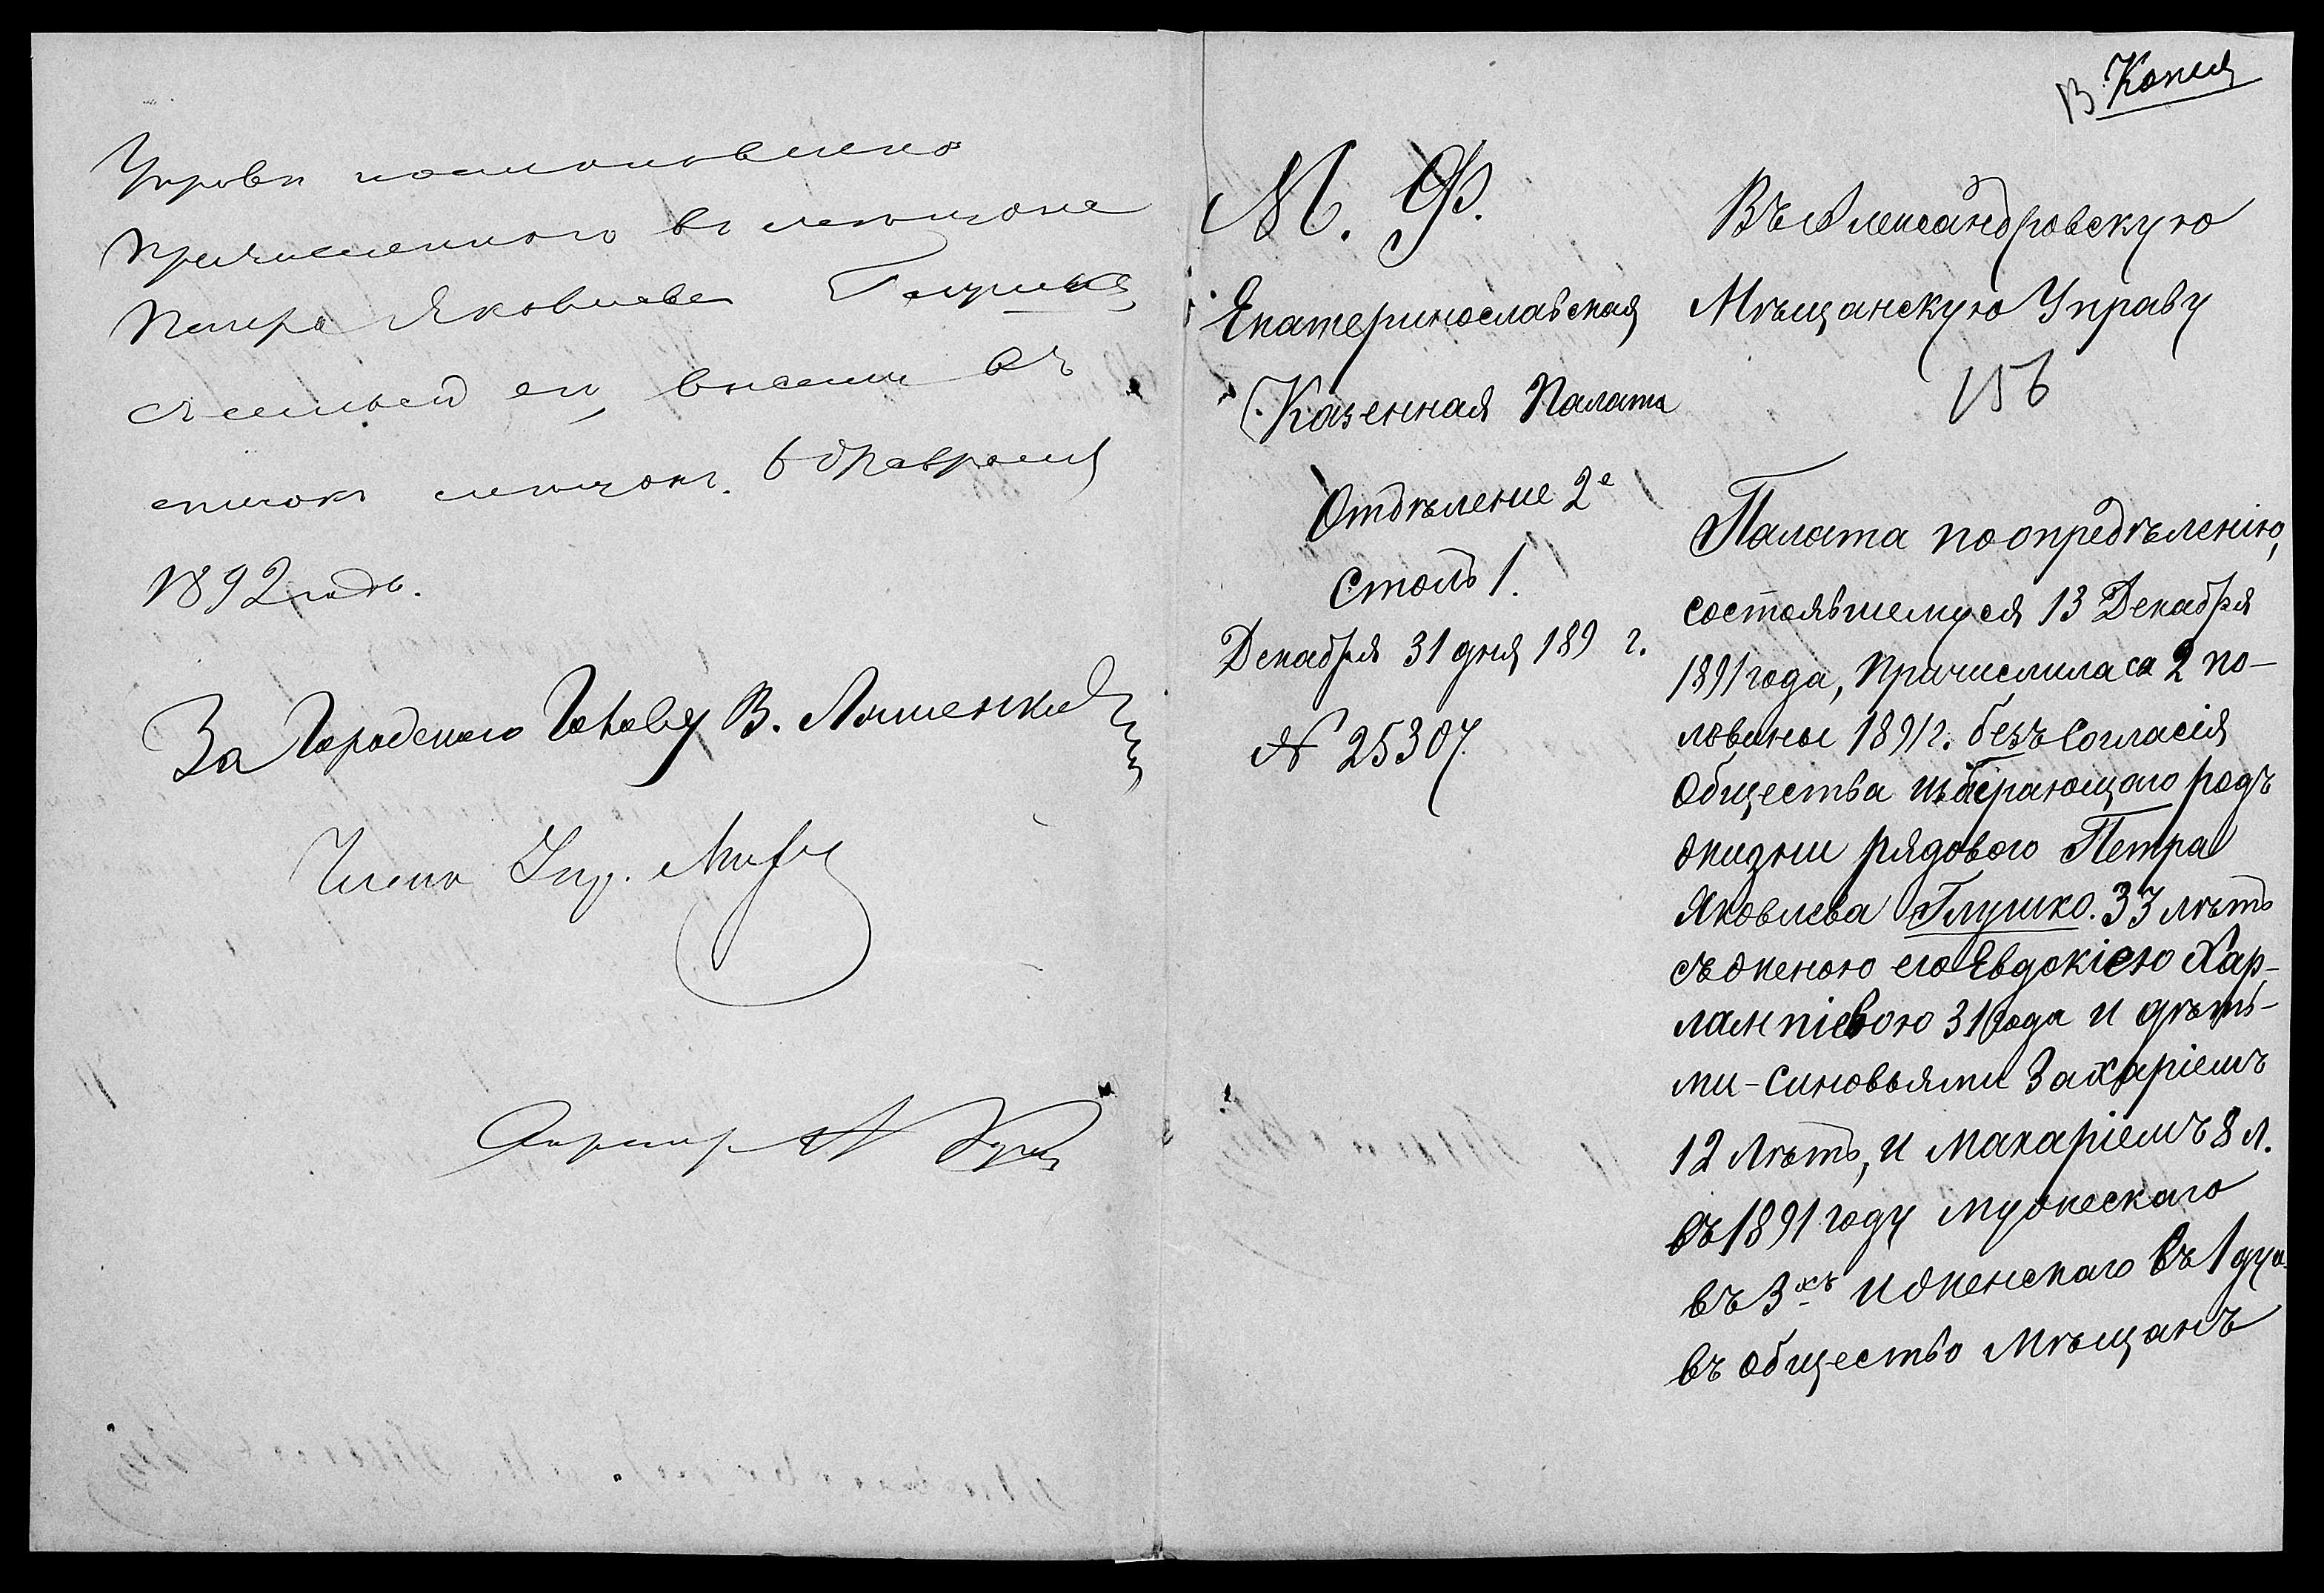 Управы постановлено
причисленного въ мещане
Петра Яковлева Глушка
съ семьей его, внести въ
список мещанъ. 6 Февраля
1892 года.
За Городского Голову В. Ляшенко
Членъ Упр.
Копия
М. Ф.
Екатеринославская
Казенная Палата
Отдѣление 2е
Столъ 1.
Декабря 31 дня 189 г.
№ 25307.
Въ Александровскую
Мѣщанскую Управу
156
Палата по опредѣленію,
состоявшемуся 13 Декабря
1891 года, причислила съ 2 по-
ловины 1891 г. безъ согласія
Общества избирающаго родъ
жизни рядового Петра
Яковлева Глушко. 33 лѣтъ
съ женою его Евдокіею Хар-
лампіевою 31 года и дѣть-
ми-синовьями Захаріемъ
12 лѣтъ, и Макаріемъ 8 л.
въ 1891 году мужескаго
въ 3хъ и женскаго въ 1 душ.
въ общество Мѣщанъ